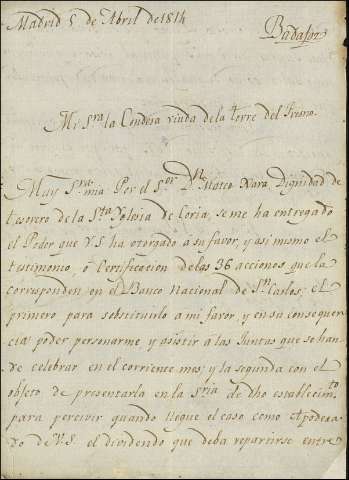 Madrid 5 de Abril de 1814
Badajoz
Mi Sra. la Condesa viuda de la torre del Fresno.
Muy Sra. mia Por el Sor. Dn. Mateo Jara, Dignidad de
tesorero de la Sta. Yglesia de Coria, se me ha entregado
el Poder que V.S. ha otorgado a su favor, y asi mismo el
testimonio, ó Certificacion de las 36 acciones que la
corresponden en el Banco Nacional de Sn. Carlos; el
primero para substituirlo a mi favor, y en su consequen
cia poder personarme y asistir a las Juntas que se han
de celebrar en el corriente mes; y la segunda con el
objeto de presentarla en la Sria. de dho establecimto.
para percivir quando llegue el caso como Apodera-
do de V.S. el dividendo que deba repartirse entre